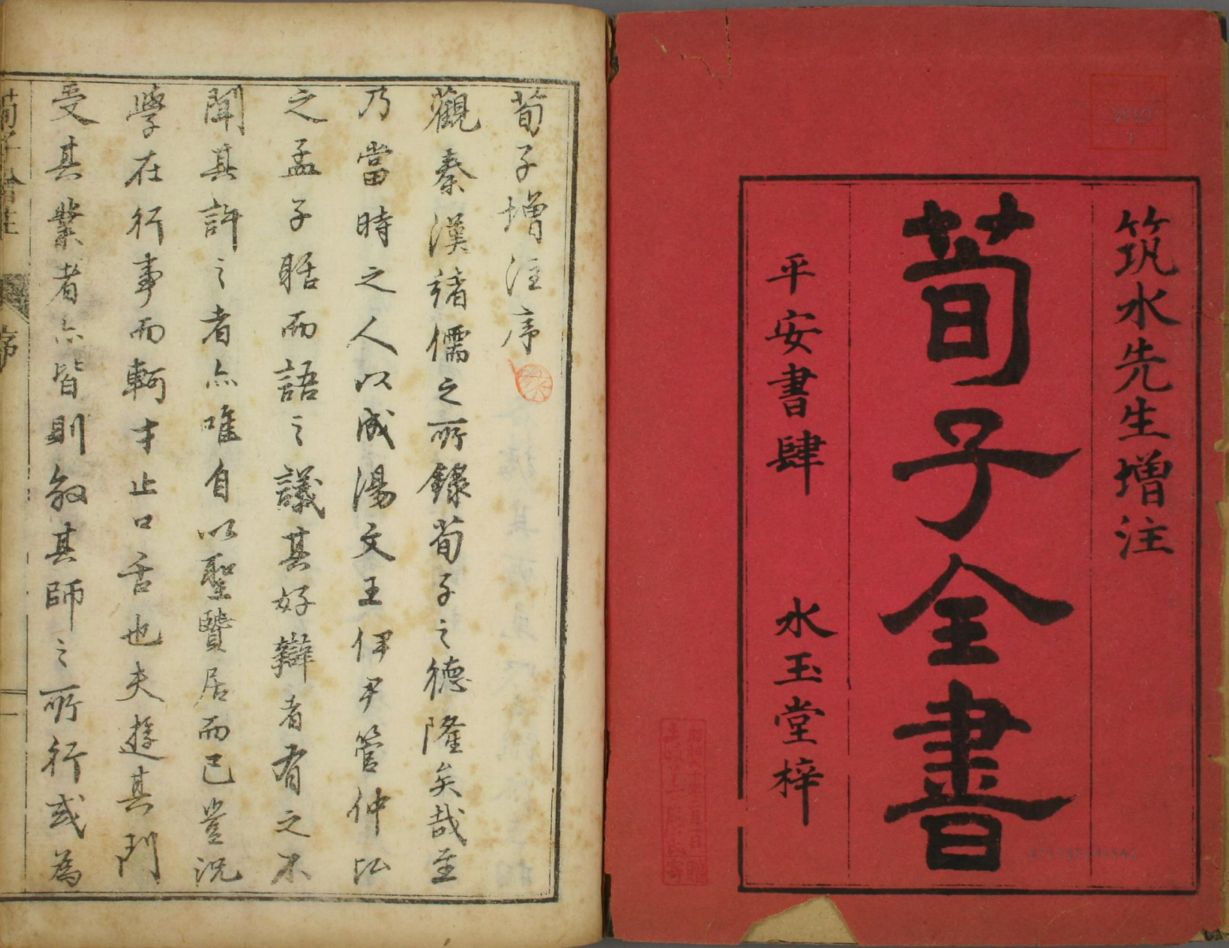 筑水先生增注
荀子全書
平安書肆 水玉堂梓
荀子增注序
觀秦漢諸儒之所錄荀子之德隆矣哉至
乃當時之人以成湯文王伊尹管仲比
之孟子聒而語之議其好辯者有之不
聞其許之者亦唯自以聖賢居而已豈況
學在行事而軻才止口舌也夫遊其門
受其業者亦皆則效其師之所行或為
荀子增注
序
一